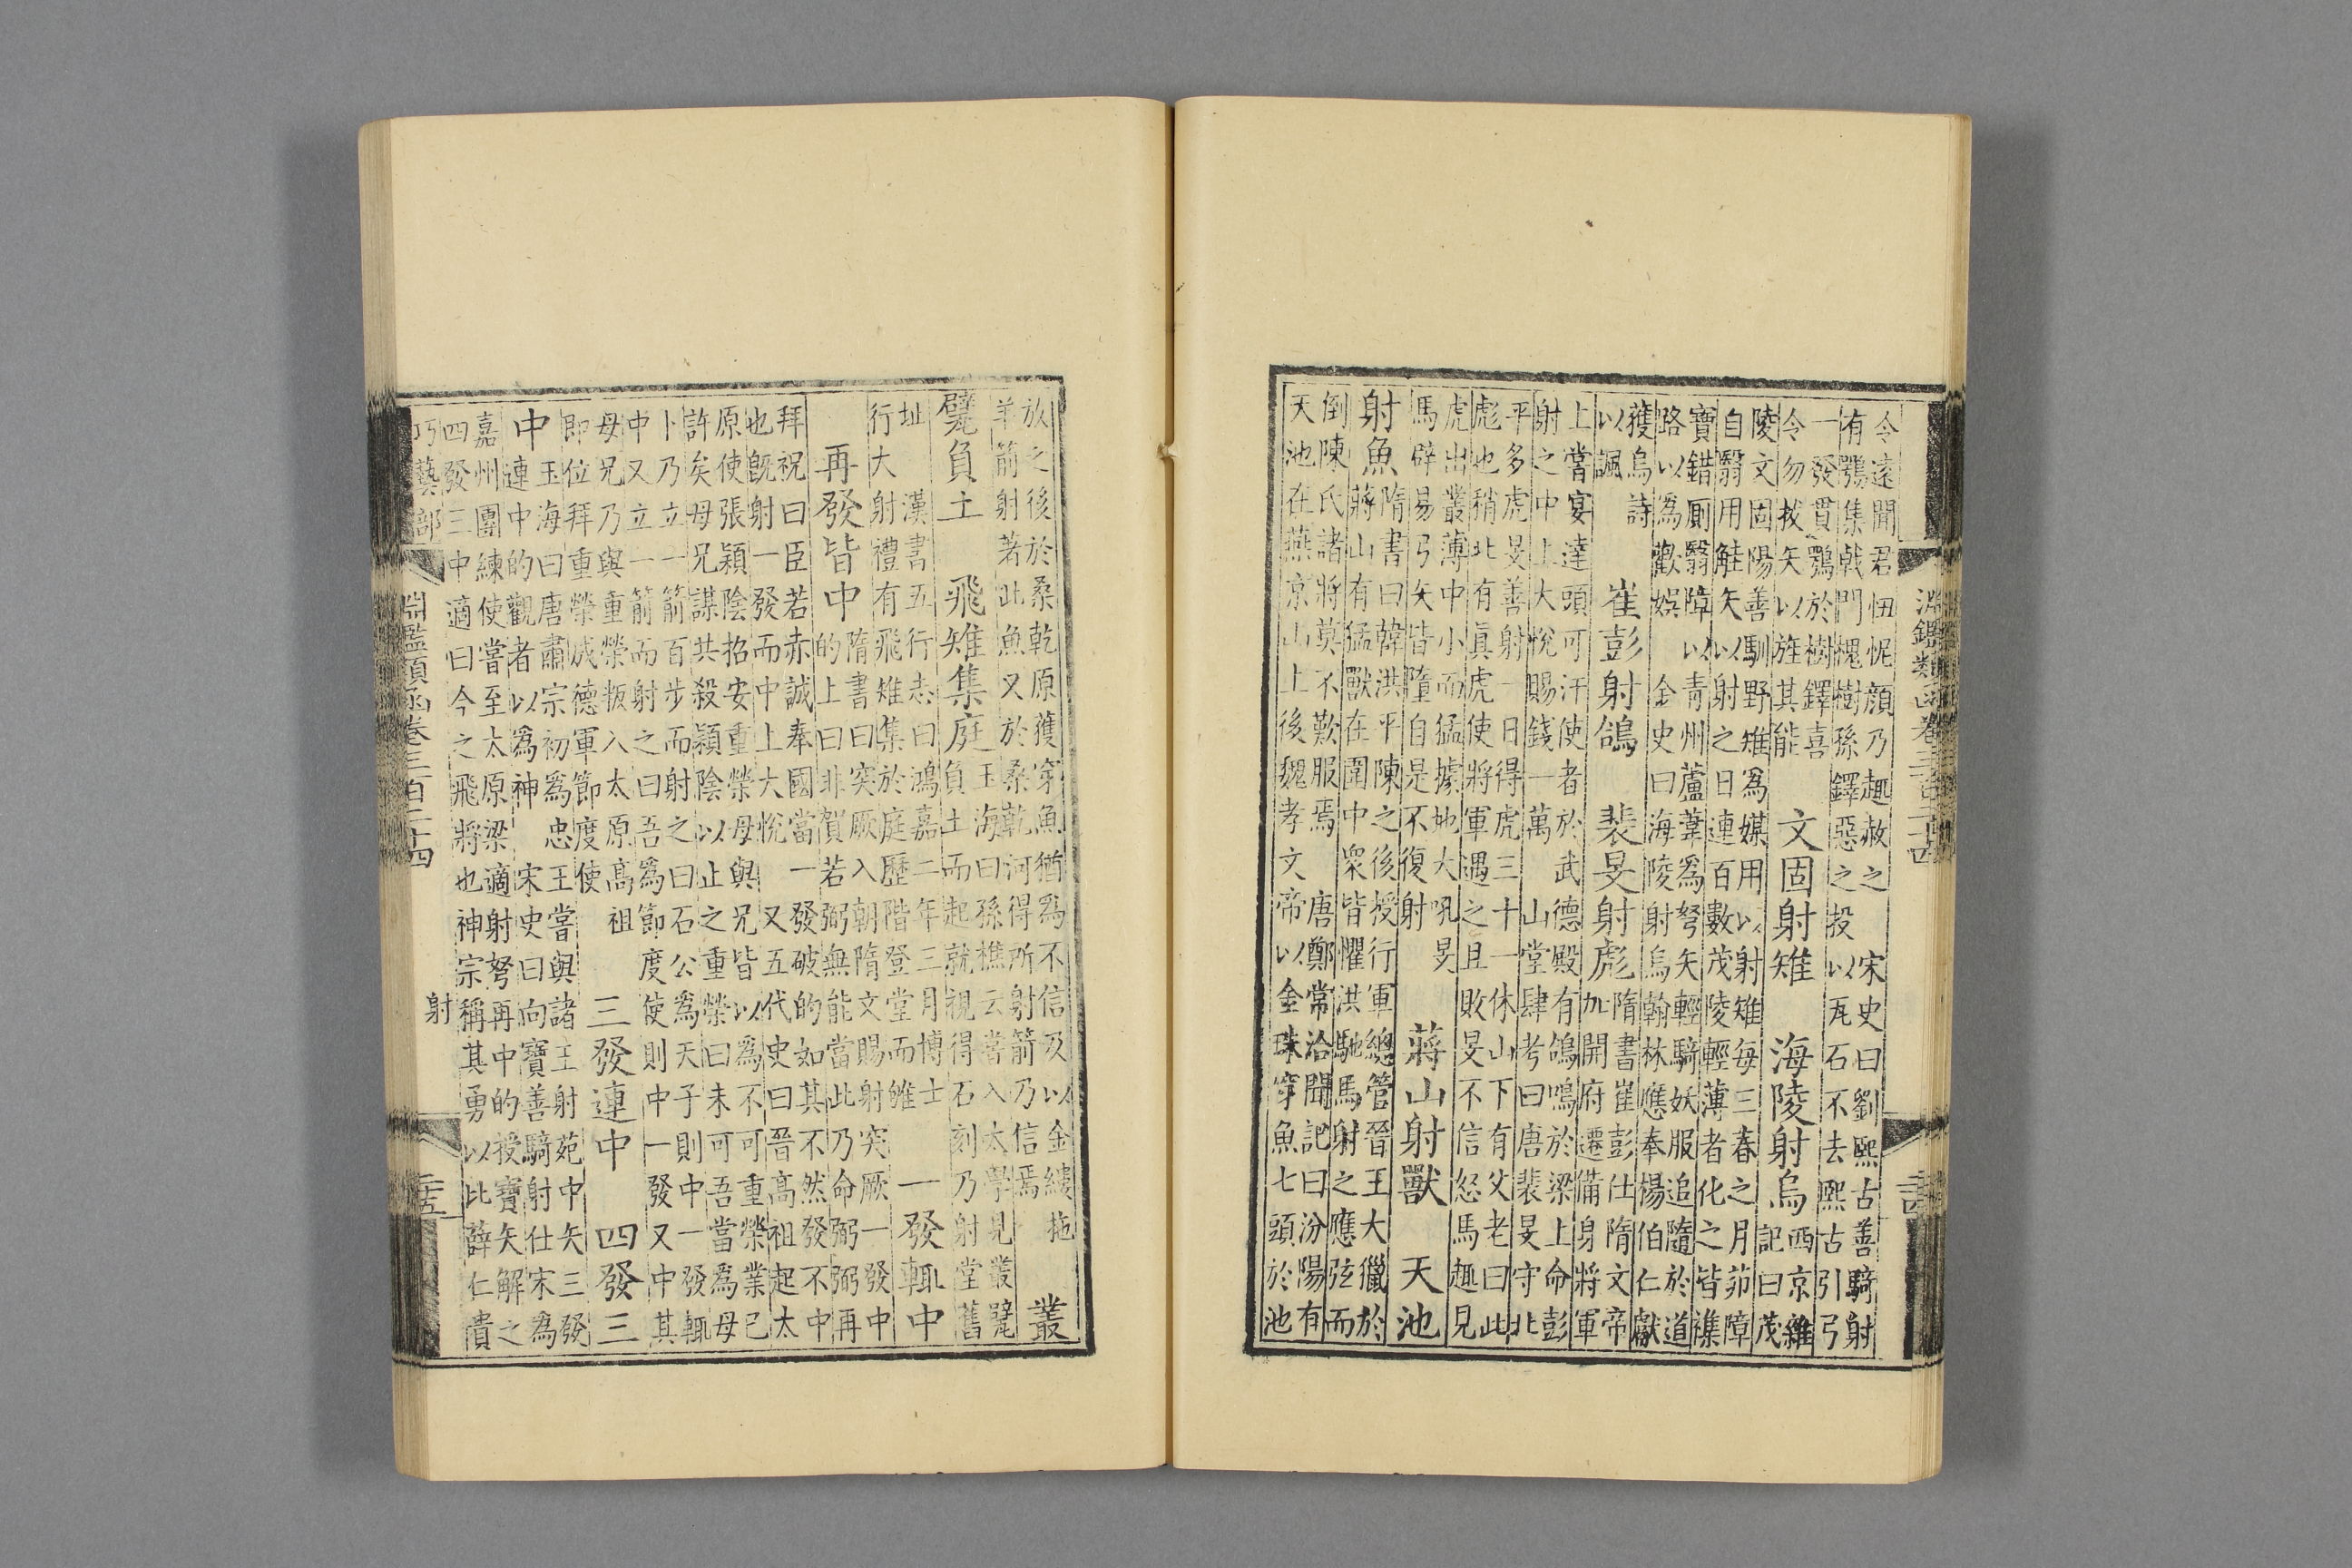 淵鑑類函卷三百二十四
令遠聞君忸怩顔乃趣赦之 宋史曰劉熙古善騎射
有鶚集戟門槐樹孫鐸惡之投以瓦石不去熙古引弓
一發貫鶚於樹鐸喜
令勿拔矢以旌其能
文固射雉 海陵射烏
西京雜
記曰茂
陵文固陽善馴野雉爲媒用以射雉每三春之月茆障
自翳用觟矢以射之日連百數茂陵輕薄者化之皆襍
寶錯厠翳障以青州蘆葦爲弩矢輕騎妖服追隨於道
路以爲歡娛 金史曰海陵射烏翰林應奉楊伯仁獻
獲烏詩
以諷
崔彭射鴿 裴旻射彪
隋書崔彭仕隋文帝
加開府遷備身將軍
上嘗宴達頭可汗使者於武德殿有鴿鳴於梁上命彭
射之中上大悅賜錢一萬 山堂肆考曰唐裴旻守北
平多虎旻善射一日得虎三十一休山下有父老曰此
彪也稍北有眞虎使將軍遇之且敗旻不信怒馬趣見
虎出叢薄中小而猛據地大吼旻
馬辟易弓矢皆墮自是不復射
蔣山射獸 天池
射魚
隋書曰韓洪平陳之後授行軍總管晉王大獵於
蔣山有猛獸在圍中衆皆懼洪馳馬射之應弦而
倒陳氏諸將莫不歎服焉 唐鄭常洽聞記曰汾陽有
天池在燕京山上後魏孝文帝以金珠穿魚七頭於池
放之後於桑乾原獲穿魚猶爲不信又以金縷拖
羊箭射著此魚又於桑乾河得所射箭乃信焉
叢
甓負土 飛雉集庭
玉海曰孫樵云嘗入太學見叢甓
負土而起就視得石刻乃射堂舊
址 漢書五行志曰鴻嘉二年三月博士
行大射禮有飛雉集於庭歷階登堂而雊
一發輒中
再發皆中
隋書曰突厥入朝隋文賜射突厥一發中
的上曰非賀若弼無能當此乃命弼弼再
拜祝曰臣若赤誠奉國當一發破的如其不然發不中
也旣射一發而中上大悅 又五代史曰晉高祖起太
原使張穎陰招安重榮母與兄皆以爲不可重榮業已
許矣母兄謀共殺穎陰以止之重榮曰未可吾當爲母
卜乃立一箭百步而射之曰石公爲天子則中一發輒
中又立一箭而射之曰吾爲節度使則中一發又中其
母兄乃與重榮叛入太原高祖
即位拜重榮成德軍節度使
三發連中 四發三
中
玉海曰唐肅宗初爲忠王嘗與諸王射苑中矢三發
連中的觀者以爲神 宋史曰向寶善騎射仕宋爲
嘉州團練使嘗至太原梁適射弩再中的授寶矢解之
四發三中適曰今之飛將也神宗稱其勇以比薛仁貴
巧藝部 淵鑑類函卷三百二十四 射